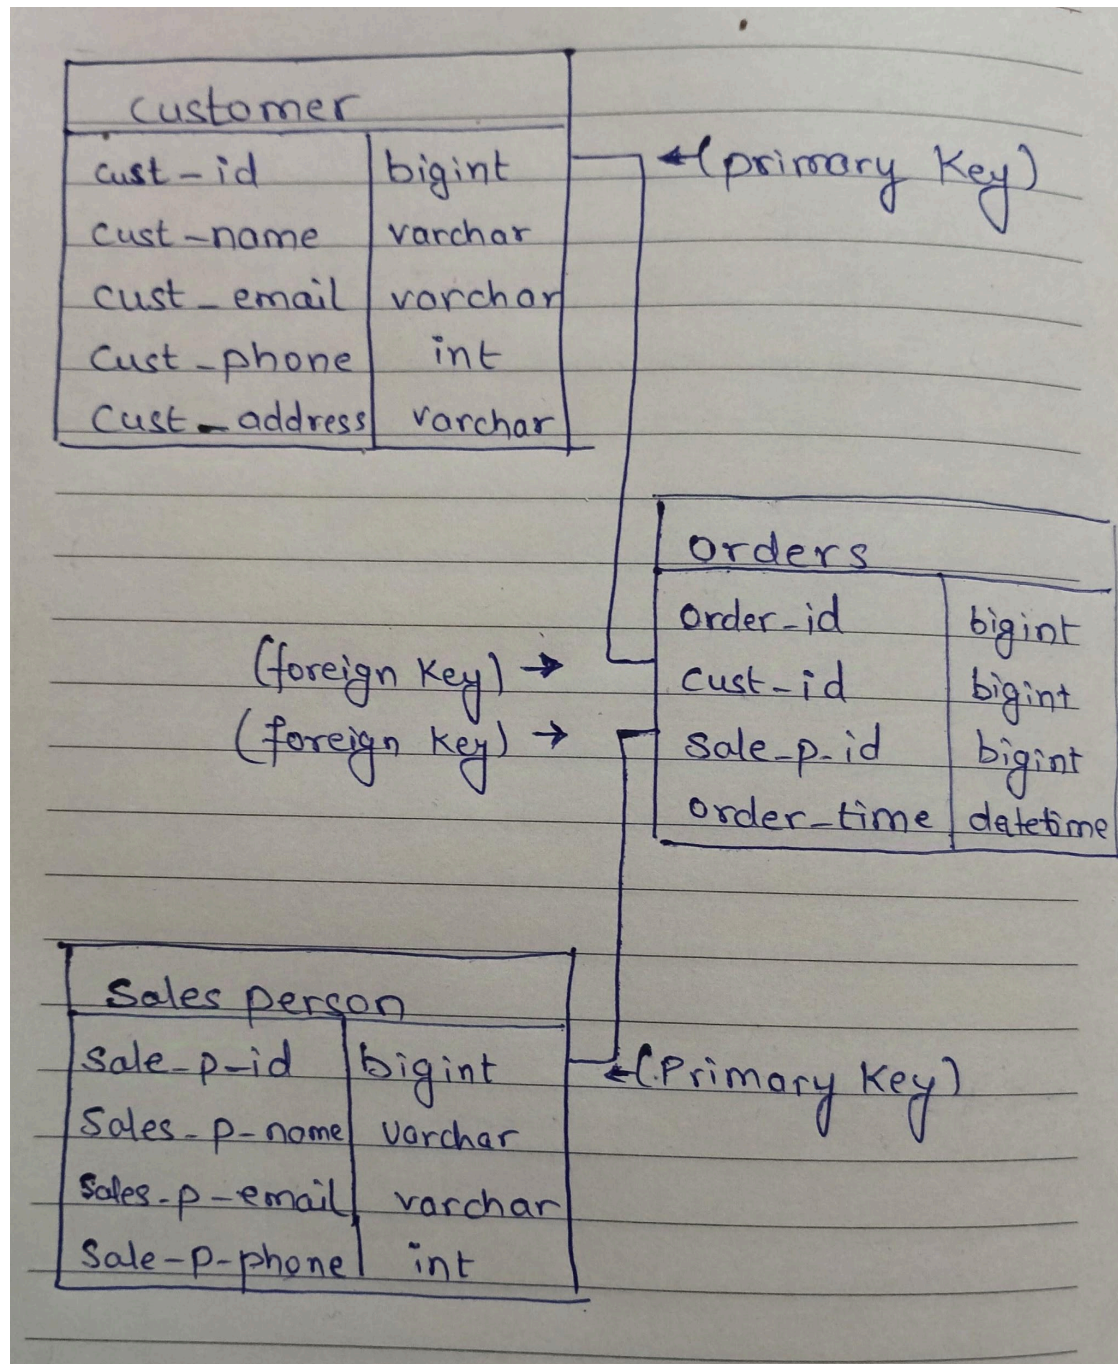 customer
cust-id bigint
cust-name varchar
cust_email varchar
cust-phone int
cust-address varchar
(primary key)
orders
order-id bigint
(foreign key) → cust-id bigint
(foreign key) → sale-p-id bigint
order-time datetime
Sales person
sale-p-id bigint
Sales-p-name varchar
Sales-p-email varchar
Sale-p-phone int
(Primary Key)